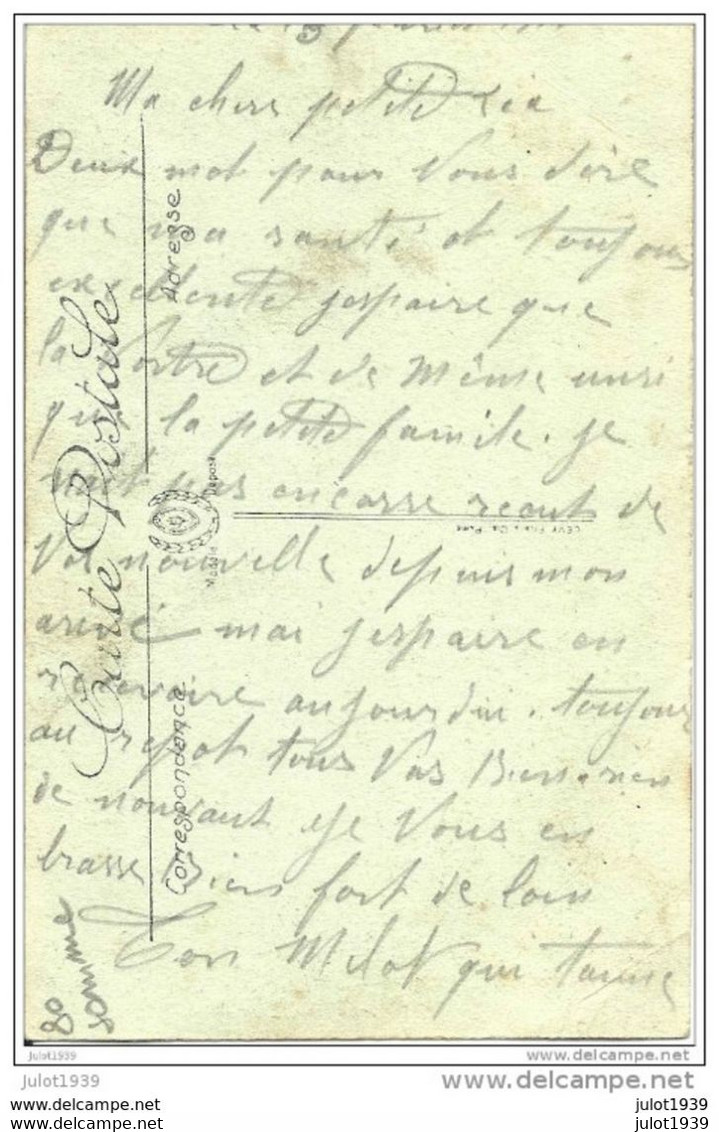 Ma chere petite
Deux mot pour Vous dire
que ma santé et toujours
exellente jespaire que
la Votre et de même
que la petite famile. je
pas encorre recut de
Vos nouvelle depuis mon
arivé mai jespaire en
resevoire aujourdui. toujours
au repot tous Vas Bien. rien
de nouvaut je Vous en
brasse Bien fort de loin
Ton Milot qui taime
Carte Postale
Correspondance
Adresse
Modèle Déposé
80
somme
julot1939
www.delcampe.net
julot1939
www.delcampe.net
www.delcampe.net
julot1939
www.delcampe.net
julot1939